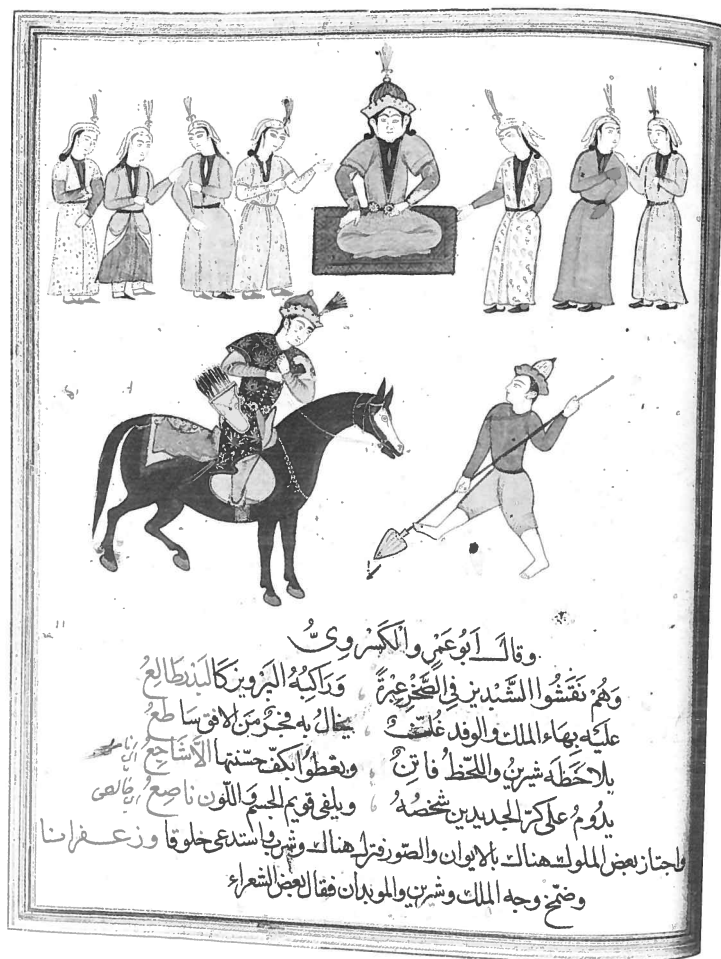 وقال أبو عمرو الكسروىُّ
وهُم نقشوا المشبديز في الصَّخر عِبرةً ، وَراكبهُ البَرويز كالبَدر طالعُ
عليه بهاء الملك والوفد عُكّفٌ ، يخال به فجرٌ من الافق ساطعُ
يلاحظه شيرينُ واللحظُ فاتِنٌ ، ويعطوا بكفّ حسّنتها الأشاجعُ
يدومُ على كرّ الجديدين شخصُهُ ، ويلفى قويم الجسم واللّون ناصعُ
واجتاز بعض الملوك هناك بالايوان والصّور فنزل هناك وشرب واستدعى خلوقا وزعفرانا
وضمّخ وجه الملك وشيرين والموبدان فقال بعض الشعراء